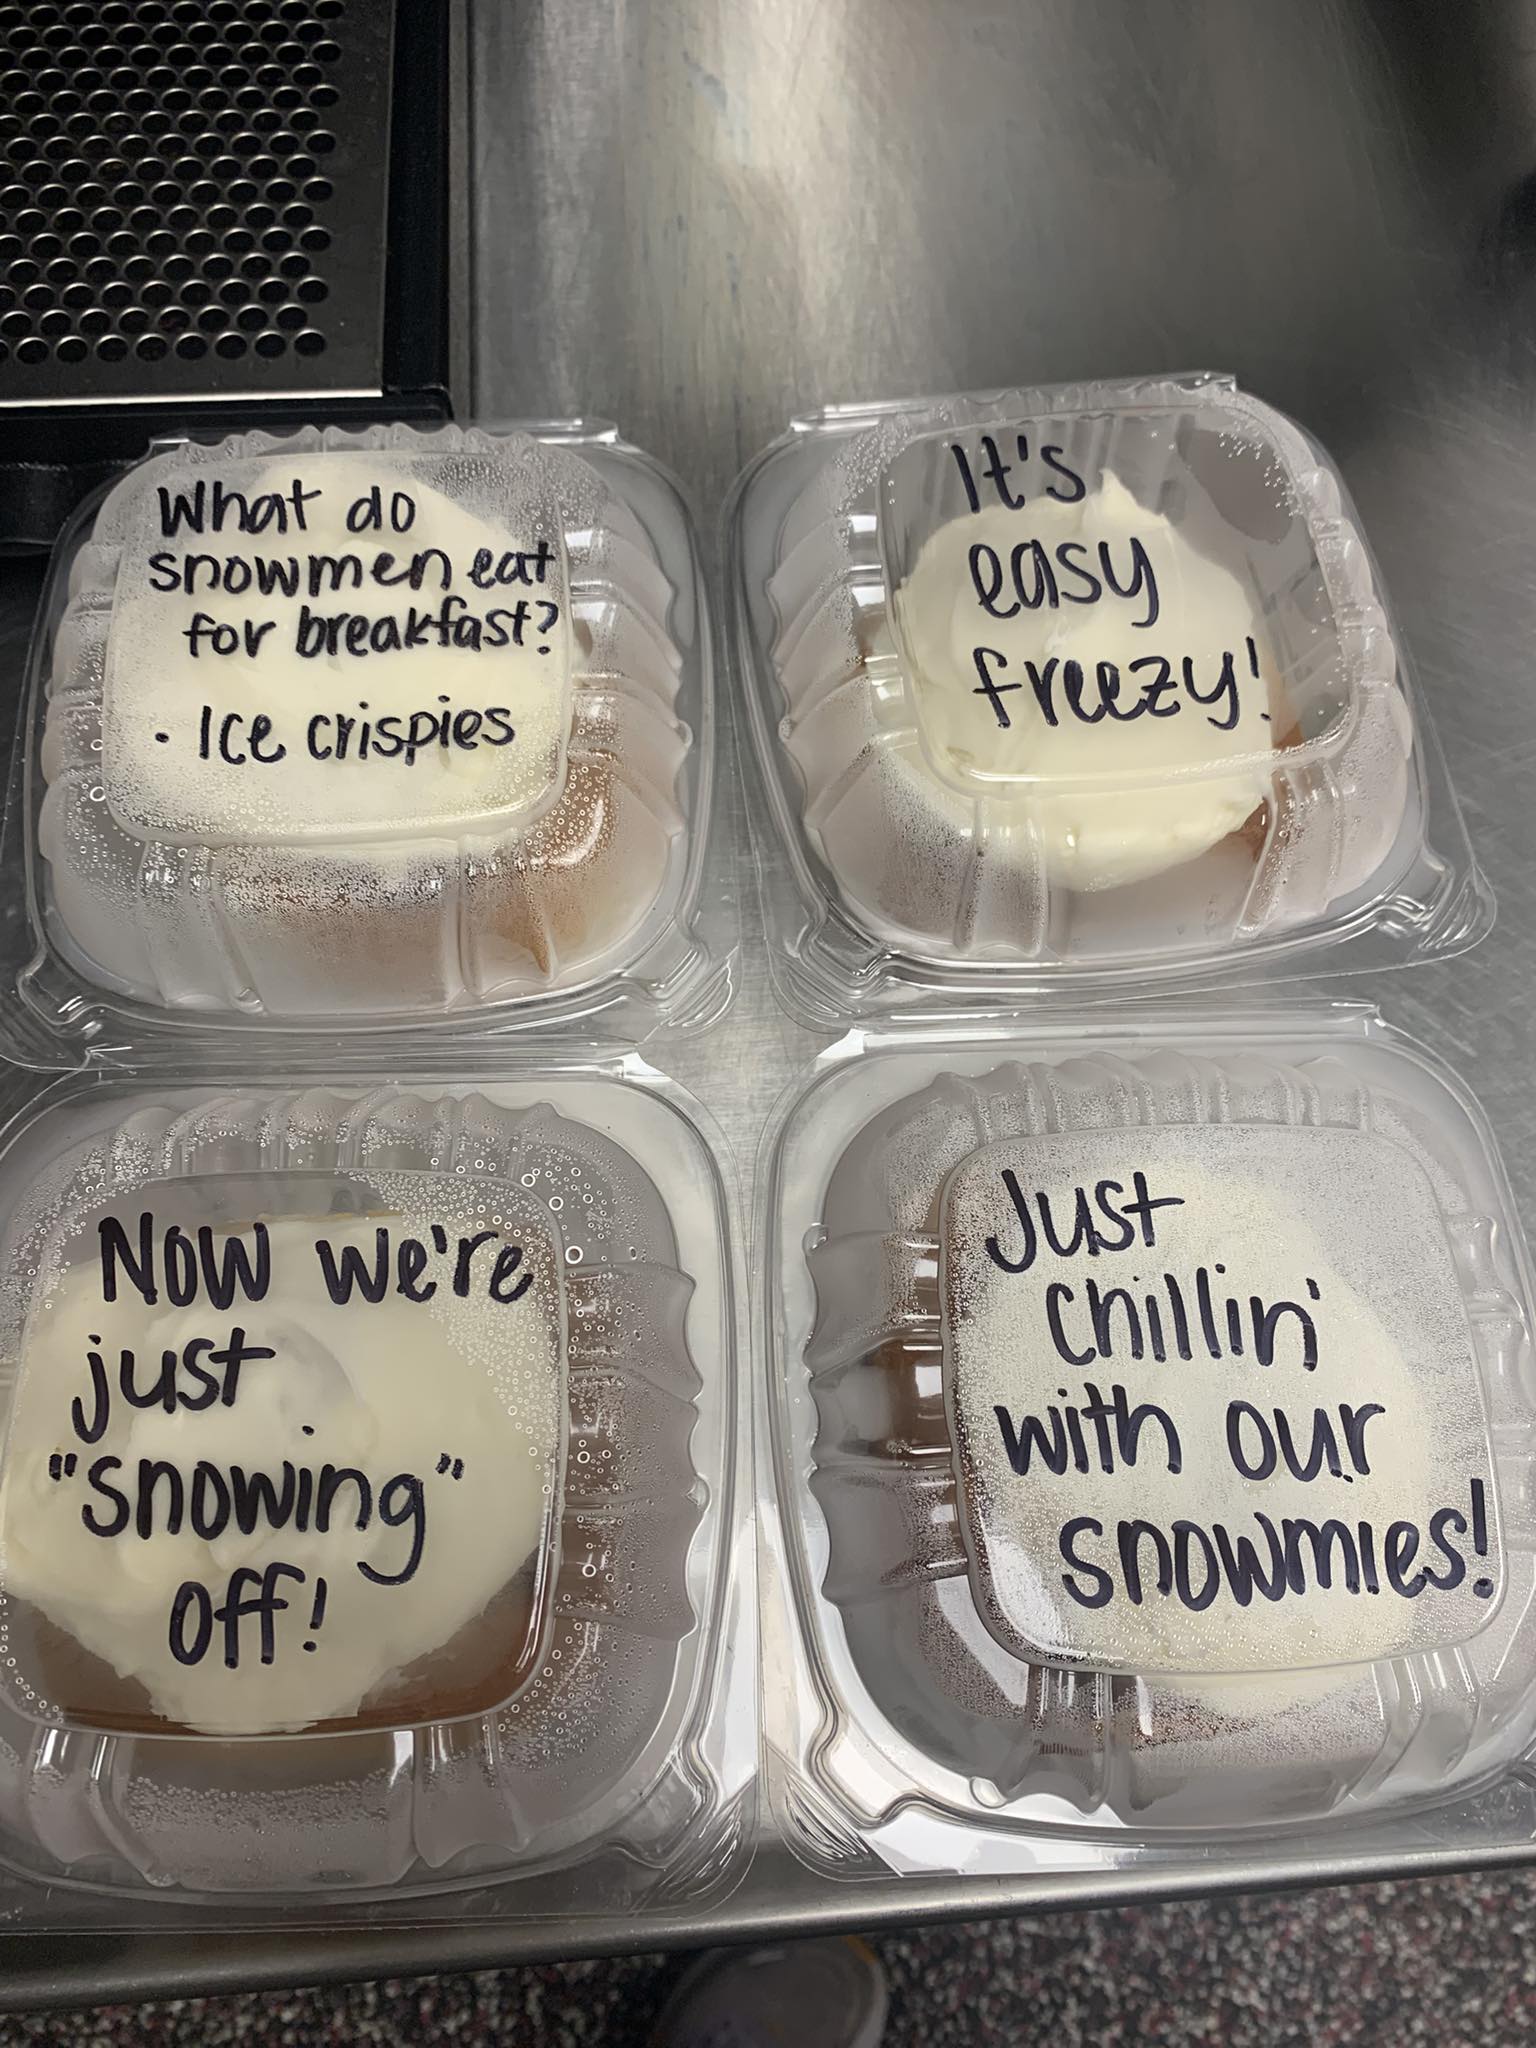 What do
snowmen eat
for breakfast?
· Ice crispies
It's
easy
freezy!
Now we're
just
"snowing"
off!
Just
chillin'
with our
snowmies!